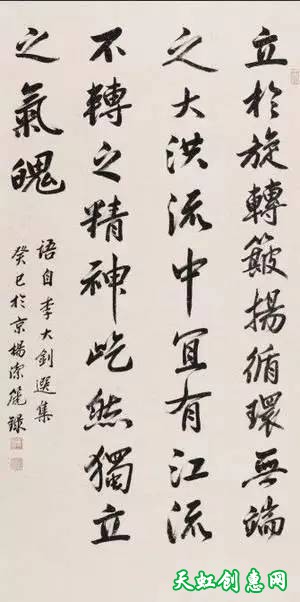 立於旋轉簸揚循環無端
之大洪流中宜有江流
不轉之精神屹然獨立
之氣魄
语自李大釗選集
癸巳於京楊潔篪録
天虹创惠网